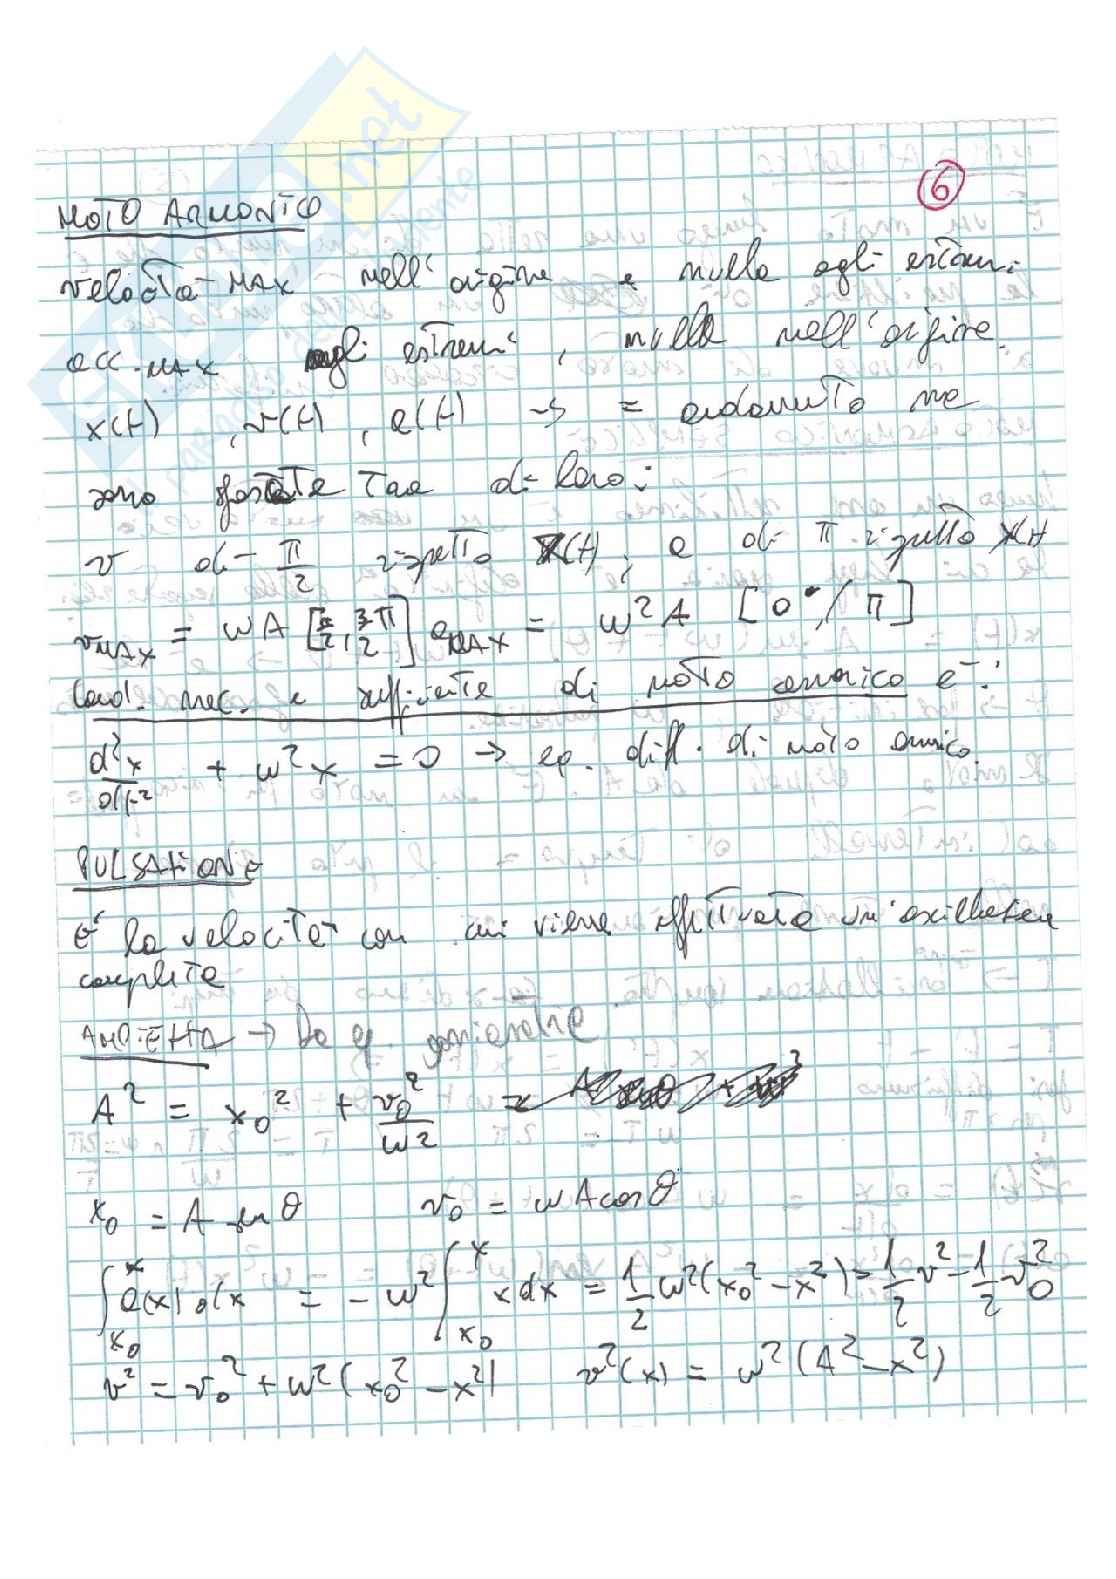 6
MOTO ARMONICO
velocità MAX nell'origine e nulla agli estremi
acc. MAX agli estremi, nulla nell'origine.
x(t), v(t), a(t) → = andamento ma
sono sfasate tra di loro:
v di π/2 rispetto x(t), a di π rispetto x(t)
vMAX = ωA [π/2, 3π/2] aMAX = ω²A [0, π]
Cond. nec. e sufficiente di moto armonico è:
d²x/dt² + ω²x = 0 → eq. diff. di moto armico.
PULSAZIONE
È la velocità con cui viene effettuata un'oscillazione
completa
AMPIEZZA → Da q.
A² = x₀² + v₀²/ω²
x₀ = A sen θ v₀ = ωA cos θ
∫ₓ₀ˣ a(x) dx = -ω² ∫ₓ₀ˣ x dx = 1/2 ω²(x₀² - x²) = 1/2 v² - 1/2 v₀²
v² = v₀² + ω²(x₀² - x²) v²(x) = ω²(A² - x²)